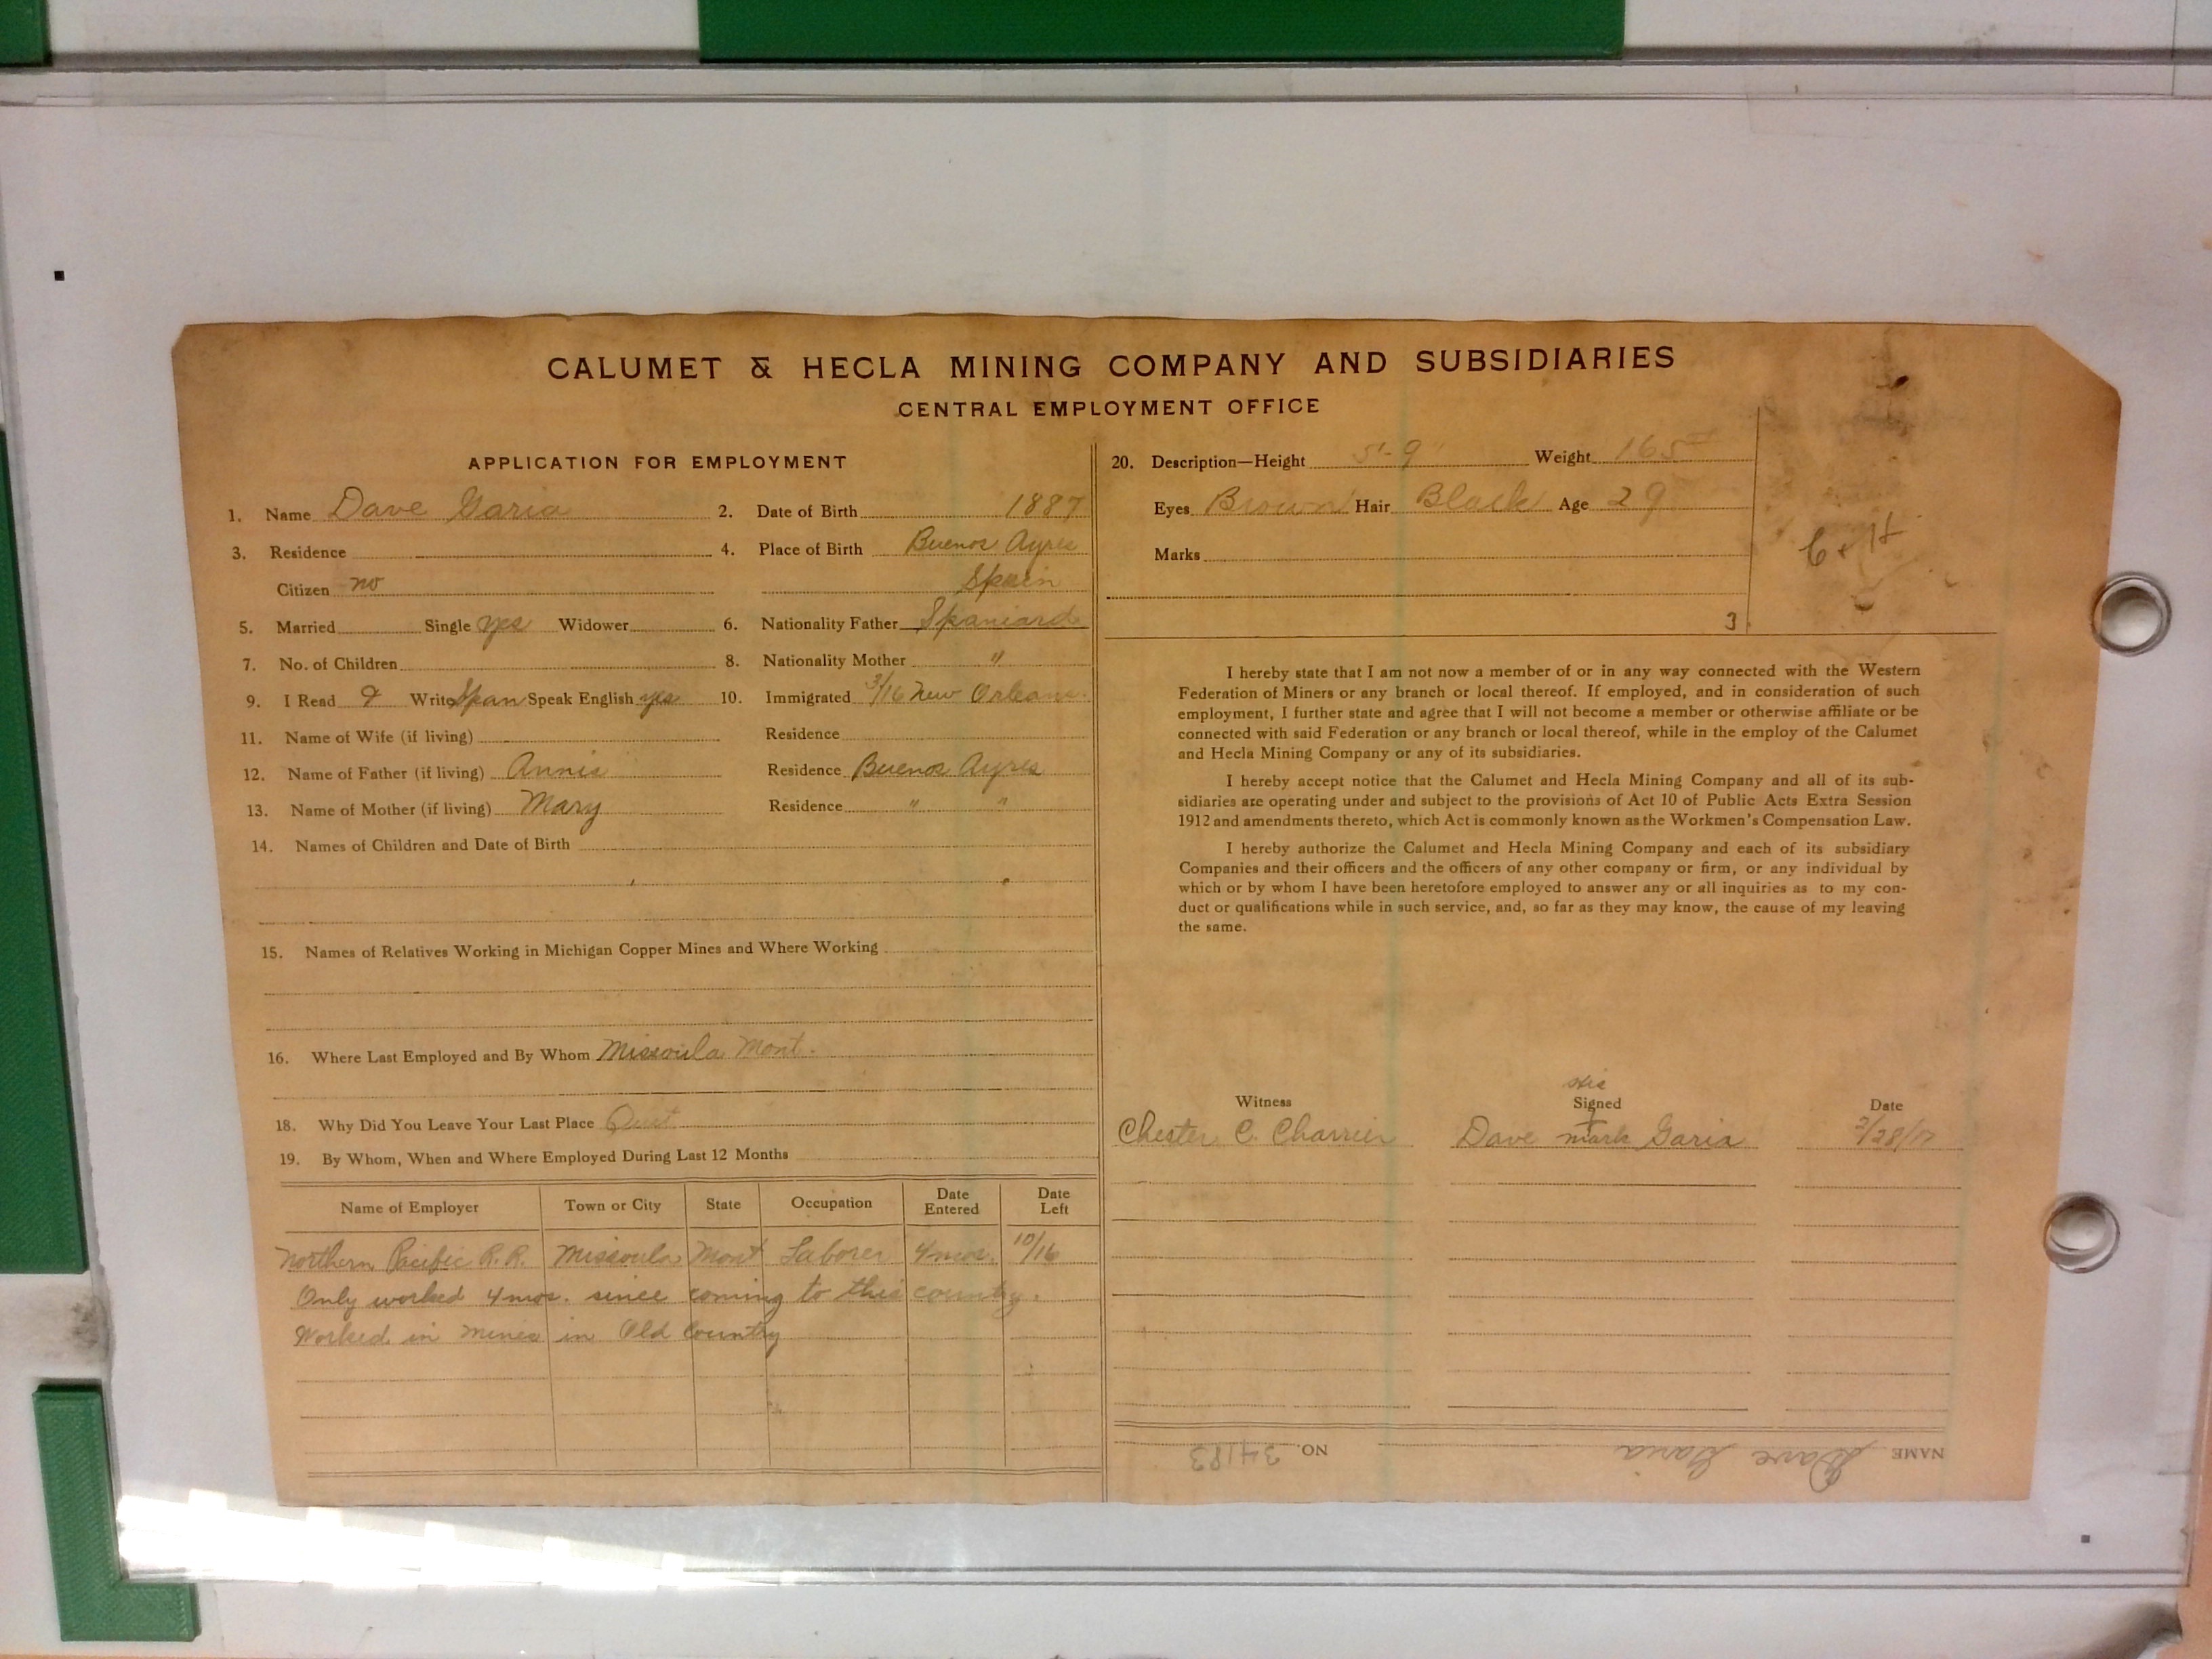 CALUMET & HECLA MINING COMPANY AND SUBSIDIARIES
CENTRAL EMPLOYMENT OFFICE
APPLICATION FOR EMPLOYMENT
1. Name Dave Garia 2. Date of Birth 1887
3. Residence 4. Place of Birth Buenos Ayres
Citizen no Spain
5. Married Single yes Widower 6. Nationality Father Spaniard
7. No. of Children 8. Nationality Mother "
9. I Read & Write Span Speak English yes 10. Immigrated 3/16 New Orleans
11. Name of Wife (if living) Residence
12. Name of Father (if living) Annis Residence Buenos Ayres
13. Name of Mother (if living) Mary Residence " "
14. Names of Children and Date of Birth
15. Names of Relatives Working in Michigan Copper Mines and Where Working
16. Where Last Employed and By Whom Missoula Mont.
18. Why Did You Leave Your Last Place Quit
19. By Whom, When and Where Employed During Last 12 Months
Name of Employer Town or City State Occupation Date Entered Date Left
Northern Pacific R.R. Missoula Mont Laborer 4 mos. 10/16
Only worked 4 mos. since coming to this country.
Worked in mines in Old Country
20. Description—Height 5'-9" Weight 165
Eyes Brown Hair Black Age 29
Marks
C & H
3
I hereby state that I am not now a member of or in any way connected with the Western
Federation of Miners or any branch or local thereof. If employed, and in consideration of such
employment, I further state and agree that I will not become a member or otherwise affiliate or be
connected with said Federation or any branch or local thereof, while in the employ of the Calumet
and Hecla Mining Company or any of its subsidiaries.
I hereby accept notice that the Calumet and Hecla Mining Company and all of its sub-
sidiaries are operating under and subject to the provisions of Act 10 of Public Acts Extra Session
1912 and amendments thereto, which Act is commonly known as the Workmen's Compensation Law.
I hereby authorize the Calumet and Hecla Mining Company and each of its subsidiary
Companies and their officers and the officers of any other company or firm, or any individual by
which or by whom I have been heretofore employed to answer any or all inquiries as to my con-
duct or qualifications while in such service, and, so far as they may know, the cause of my leaving
the same.
his
Witness Signed Date
Chester C. Charrier Dave mark Garia 2/28/17
NAME Dave Garia NO. 34183